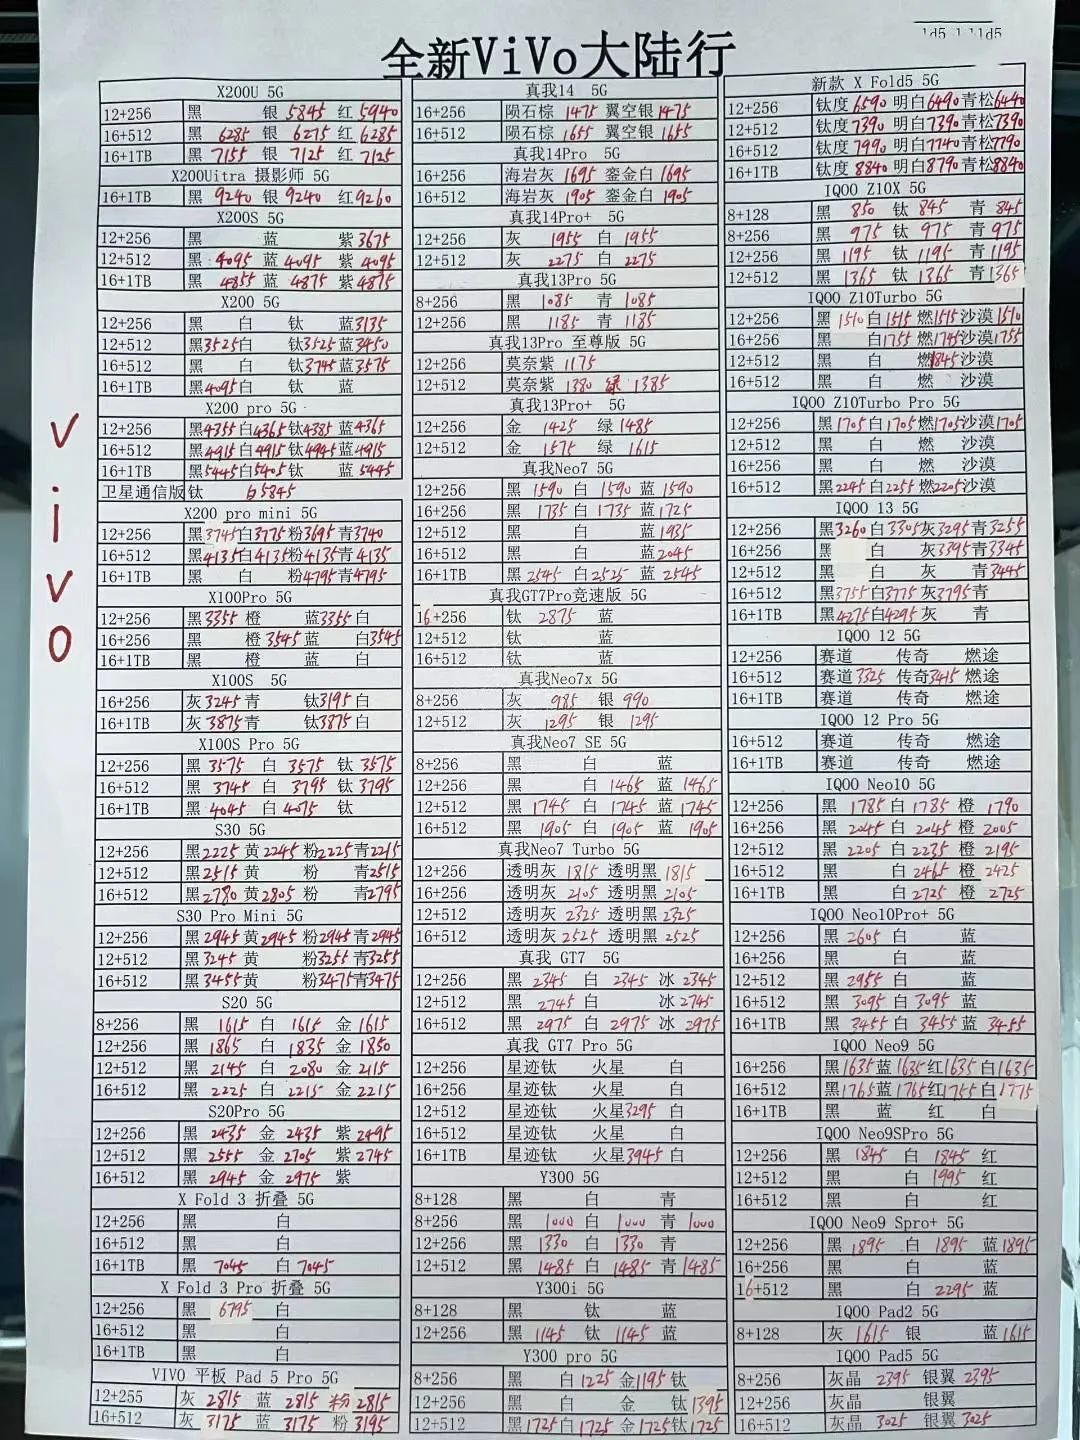 全新ViVo大陆行
ViVo
X200U 5G
12+256 黑 银 5845 红 5940
16+512 黑 6285 银 6275 红 6285
16+1TB 黑 7155 银 7125 红 7125
X200Uitra 摄影师 5G
16+1TB 黑 9240 银 9240 红 9260
X200S 5G
12+256 黑 蓝 紫 3675
12+512 黑 4095 蓝 4095 紫 4095
16+1TB 黑 4855 蓝 4875 紫 4875
X200 5G
12+256 黑 白 钛 蓝 3135
12+512 黑 3525 白 钛 3525 蓝 3450
16+512 黑 白 钛 3745 蓝 3575
16+1TB 黑 4095 白 钛 蓝
X200 pro 5G
12+256 黑 4355 白 4365 钛 4385 蓝 4365
16+512 黑 4915 白 4915 钛 4945 蓝 4915
16+1TB 黑 5445 白 5405 钛 蓝 5445
卫星通信版 钛 白 5845
X200 pro mini 5G
12+256 黑 3745 白 3775 粉 3695 青 3740
16+512 黑 4135 白 4135 粉 4135 青 4135
16+1TB 黑 白 粉 4795 青 4795
X100Pro 5G
12+256 黑 3355 橙 蓝 3355 白
16+256 黑 橙 3545 蓝 白 3545
16+1TB 黑 橙 蓝 白
X100S 5G
16+256 灰 3245 青 钛 3195 白
16+1TB 灰 3875 青 钛 3875 白
X100S Pro 5G
12+256 黑 3575 白 3575 钛 3575
16+512 黑 3745 白 3795 钛 3795
16+1TB 黑 4045 白 4075 钛
S30 5G
12+256 黑 2225 黄 2245 粉 2225 青 2215
12+512 黑 2515 黄 粉 青 2515
16+512 黑 2780 黄 2805 粉 青 2795
S30 Pro Mini 5G
12+256 黑 2945 黄 2945 粉 2945 青 2945
12+512 黑 3245 黄 粉 3255 青 3255
16+512 黑 3455 黄 粉 3475 青 3475
S20 5G
8+256 黑 1615 白 1615 金 1615
12+256 黑 1865 白 1835 金 1850
12+512 黑 2145 白 2080 金 2115
16+512 黑 2225 白 2215 金 2215
S20Pro 5G
12+256 黑 2435 金 2435 紫 2495
12+512 黑 2555 金 2705 紫 2745
16+512 黑 2945 金 2975 紫
X Fold 3 折叠 5G
12+256 黑 白
16+512 黑 白
16+1TB 黑 7045 白 7045
X Fold 3 Pro 折叠 5G
12+256 黑 6795 白
16+512 黑 白
16+1TB 黑 白
VIVO 平板 Pad 5 Pro 5G
12+255 灰 2815 蓝 2815 粉 2815
16+512 灰 3175 蓝 3175 粉 3195
真我14 5G
16+256 陨石棕 1475 翼空银 1475
16+512 陨石棕 1655 翼空银 1655
真我14Pro 5G
16+256 海岩灰 1695 銮金白 1695
16+512 海岩灰 1905 銮金白 1905
真我14Pro+ 5G
12+256 灰 1955 白 1955
12+512 灰 2275 白 2275
真我13Pro 5G
8+256 黑 1085 青 1085
12+256 黑 1185 青 1185
真我13Pro 至尊版 5G
12+256 莫奈紫 1175
12+512 莫奈紫 1380 绿 1385
真我13Pro+ 5G
12+256 金 1425 绿 1485
12+512 金 1575 绿 1615
真我Neo7 5G
12+256 黑 1590 白 1590 蓝 1590
16+256 黑 1735 白 1735 蓝 1725
12+512 黑 白 蓝 1935
16+512 黑 白 蓝 2045
16+1TB 黑 2545 白 2525 蓝 2545
真我GT7Pro竞速版 5G
16+256 钛 2875 蓝
12+512 钛 蓝
16+512 钛 蓝
真我Neo7x 5G
8+256 灰 985 银 990
12+512 灰 1295 银 1295
真我Neo7 SE 5G
8+256 黑 白 蓝
12+256 黑 白 1465 蓝 1465
12+512 黑 1745 白 1745 蓝 1745
16+512 黑 1905 白 1905 蓝 1905
真我Neo7 Turbo 5G
12+256 透明灰 1815 透明黑 1815
16+256 透明灰 2105 透明黑 2105
12+512 透明灰 2325 透明黑 2325
16+512 透明灰 2525 透明黑 2525
真我 GT7 5G
12+256 黑 2345 白 2345 冰 2345
12+512 黑 2745 白 冰 2745
16+512 黑 2975 白 2975 冰 2975
真我 GT7 Pro 5G
12+256 星迹钛 火星 白
16+256 星迹钛 火星 白
12+512 星迹钛 火星 3295 白
16+512 星迹钛 火星 白
16+1TB 星迹钛 火星 3945 白
Y300 5G
8+128 黑 白 青
8+256 黑 1000 白 1000 青 1000
12+256 黑 1330 白 1330 青
12+512 黑 1485 白 1485 青 1485
Y300i 5G
8+128 黑 钛 蓝
12+256 黑 1145 钛 1145 蓝
Y300 pro 5G
8+256 黑 白 1225 金 1195 钛
12+256 黑 白 金 钛 1395
12+512 黑 1725 白 1725 金 1725 钛 1725
新款 X Fold5 5G
12+256 钛度 6590 明白 6490 青松 6440
12+512 钛度 7390 明白 7390 青松 7390
16+512 钛度 7990 明白 7740 青松 7790
16+1TB 钛度 8840 明白 8790 青松 8840
IQOO Z10X 5G
8+128 黑 850 钛 845 青 845
8+256 黑 975 钛 975 青 975
12+256 黑 1195 钛 1195 青 1195
12+512 黑 1365 钛 1365 青 1365
IQOO Z10Turbo 5G
12+256 黑 1510 白 1515 燃 1515 沙漠 1510
16+256 黑 白 1755 燃 1745 沙漠 1755
12+512 黑 白 燃 1845 沙漠
16+512 黑 白 燃 沙漠
IQOO Z10Turbo Pro 5G
12+256 黑 1705 白 1705 燃 1705 沙漠 1705
12+512 黑 白 燃 沙漠
16+256 黑 白 燃 沙漠
16+512 黑 2245 白 2255 燃 2205 沙漠
IQOO 13 5G
12+256 黑 3260 白 3305 灰 3295 青 3255
16+256 黑 白 灰 3395 青 3345
12+512 黑 白 灰 青 3445
16+512 黑 3755 白 3775 灰 3795 青
16+1TB 黑 4275 白 4295 灰 青
IQOO 12 5G
12+256 赛道 传奇 燃途
16+512 赛道 3325 传奇 3415 燃途
16+1TB 赛道 传奇 燃途
IQOO 12 Pro 5G
16+512 赛道 传奇 燃途
16+1TB 赛道 传奇 燃途
IQOO Neo10 5G
12+256 黑 1785 白 1785 橙 1790
16+256 黑 2045 白 2045 橙 2005
12+512 黑 2205 白 2235 橙 2195
16+512 黑 白 2465 橙 2425
16+1TB 黑 白 2725 橙 2725
IQOO Neo10Pro+ 5G
12+256 黑 2605 白 蓝
16+256 黑 白 蓝
12+512 黑 2955 白 蓝
16+512 黑 3095 白 3095 蓝
16+1TB 黑 3455 白 3455 蓝 3455
IQOO Neo9 5G
16+256 黑 1635 蓝 1635 红 1635 白 1635
16+512 黑 1765 蓝 1765 红 1755 白 1775
16+1TB 黑 蓝 红 白
IQOO Neo9SPro 5G
12+256 黑 1845 白 1845 红
12+512 黑 白 1995 红
16+512 黑 白 红
IQOO Neo9 Spro+ 5G
12+256 黑 1895 白 1895 蓝 1895
16+256 黑 白 蓝
16+512 黑 白 2295 蓝
IQOO Pad2 5G
8+128 灰 1615 银 蓝 1615
IQOO Pad5 5G
8+256 灰晶 2395 银翼 2395
12+256 灰晶 银翼
16+512 灰晶 3025 银翼 3025